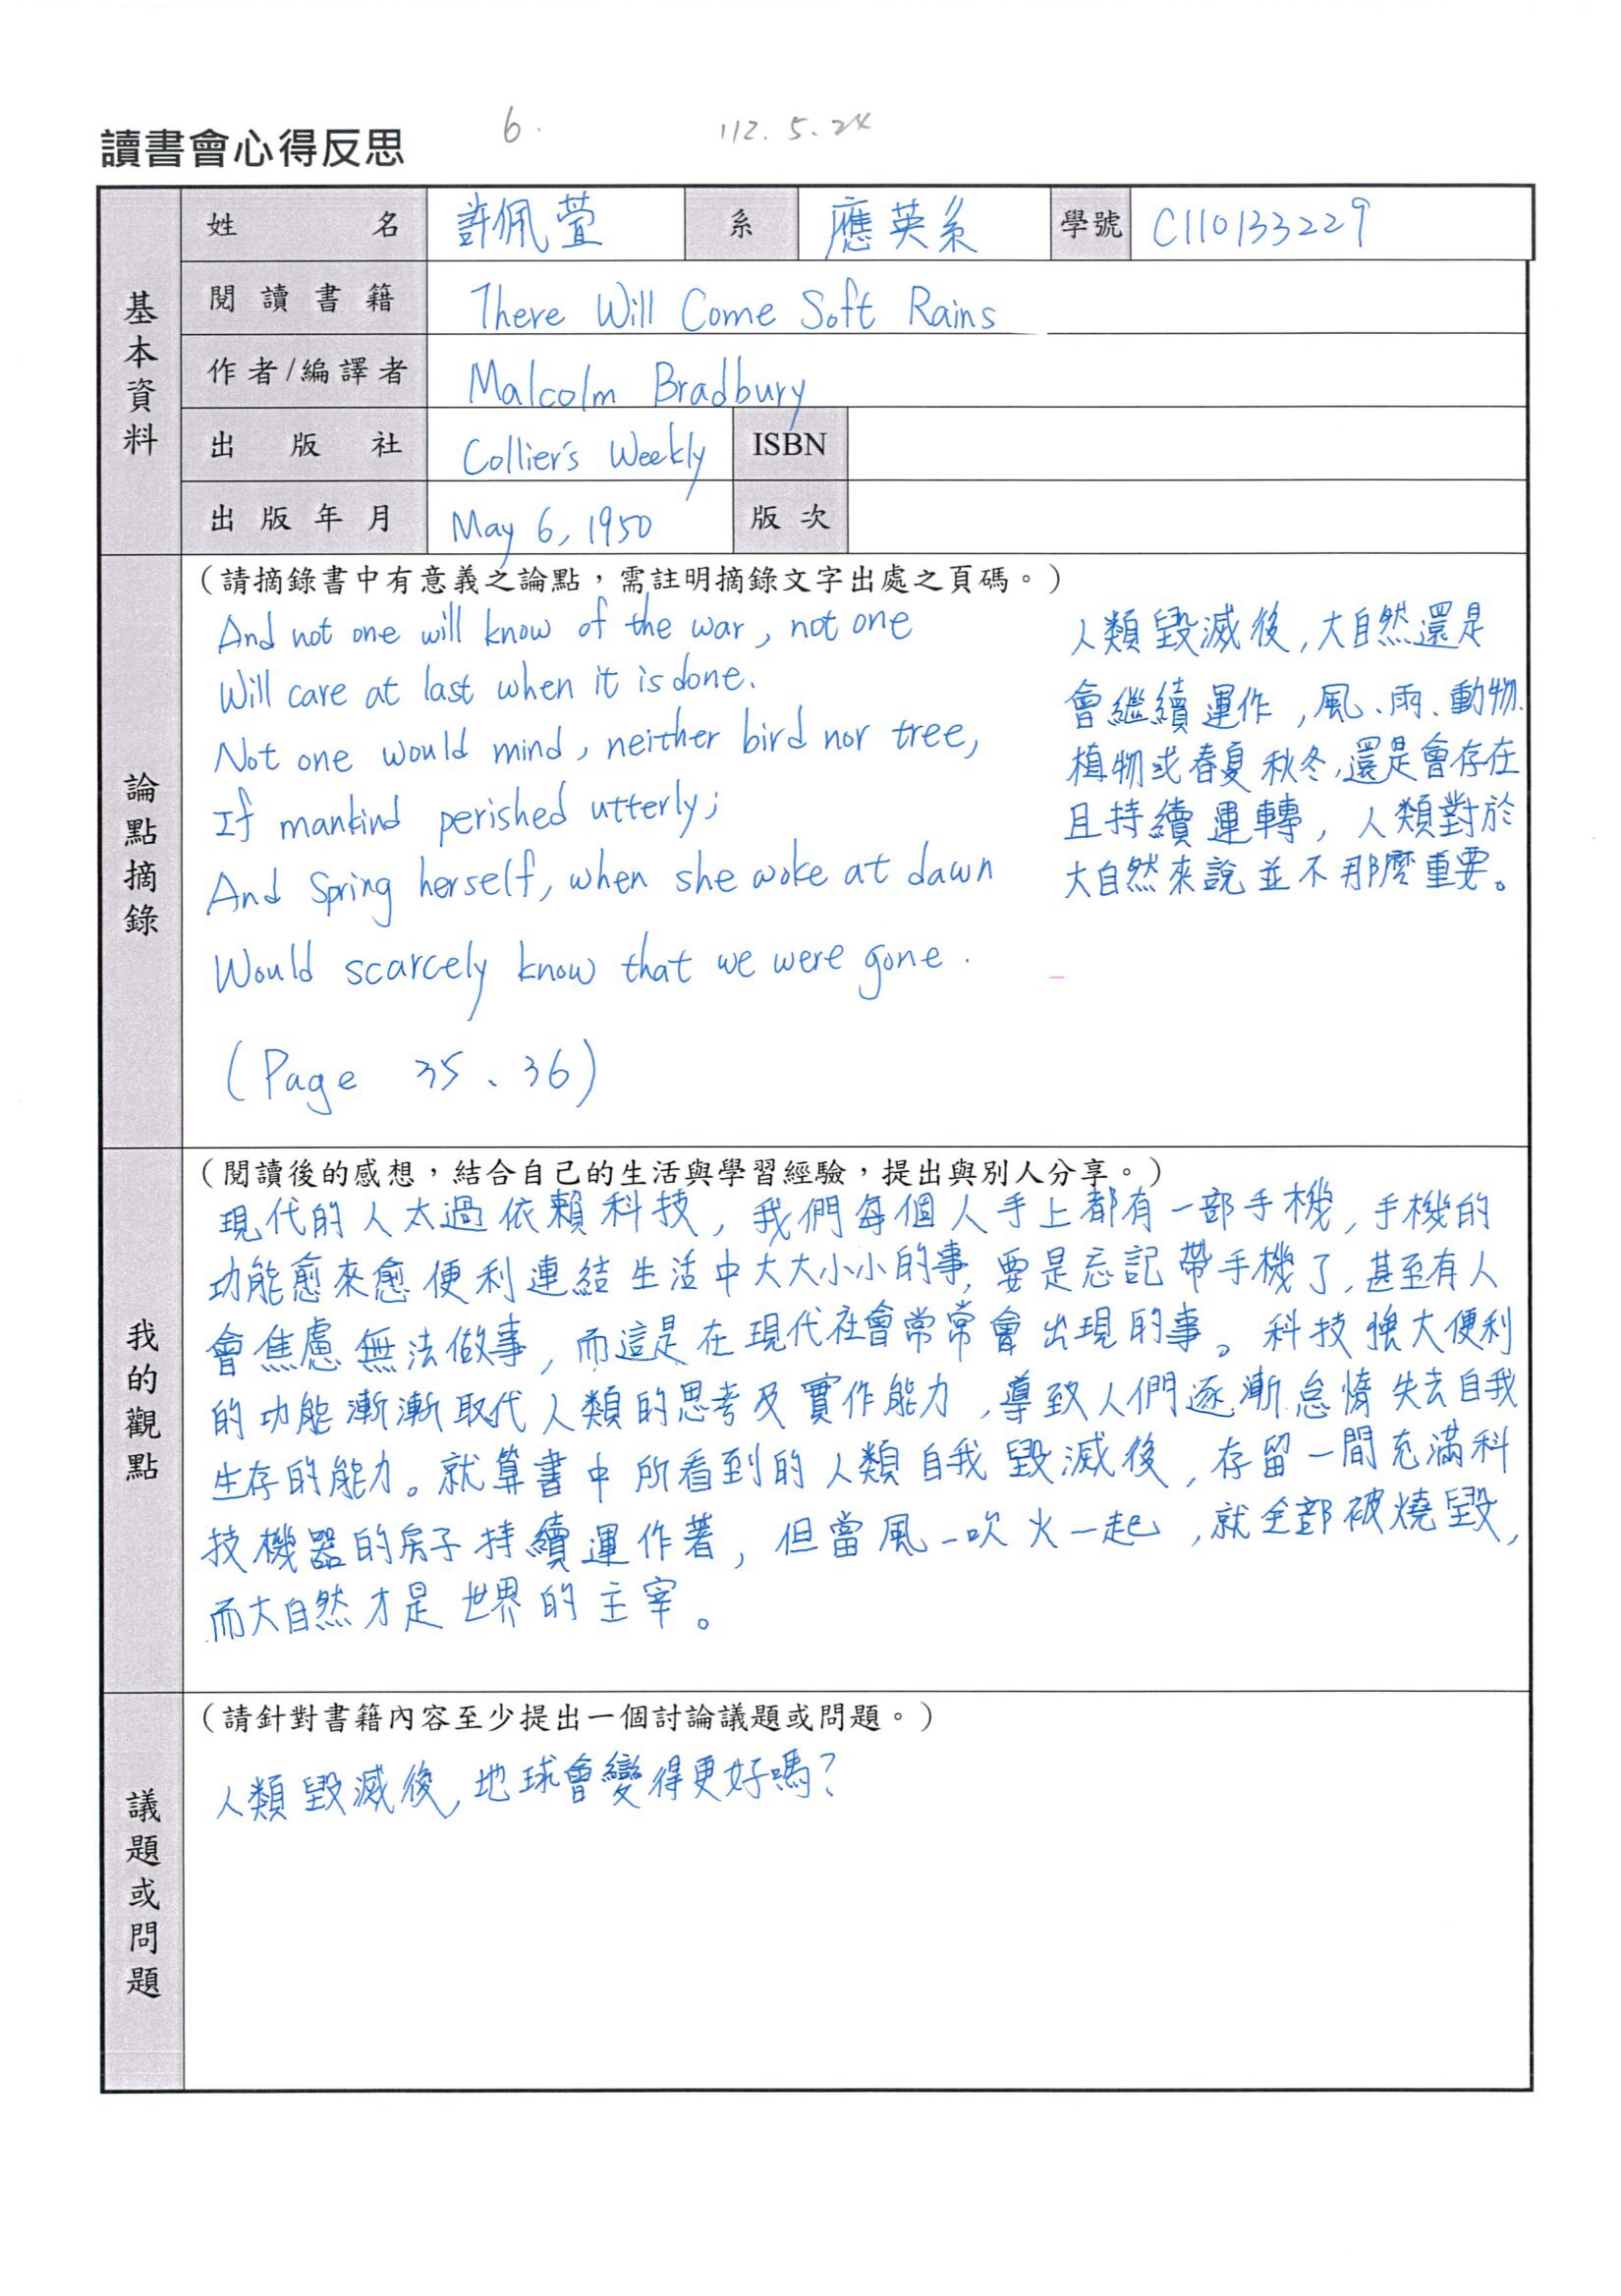 6.
112.5.24
讀書會心得反思
基本資料
姓名 許佩萱 系 應英系 學號 C110133229
閱讀書籍 There Will Come Soft Rains
作者/編譯者 Malcolm Bradbury
出版社 Collier's Weekly ISBN
出版年月 May 6, 1950 版次
論點摘錄
（請摘錄書中有意義之論點，需註明摘錄文字出處之頁碼。）
And not one will know of the war, not one
Will care at last when it is done.
Not one would mind, neither bird nor tree,
If mankind perished utterly;
And Spring herself, when she woke at dawn
Would scarcely know that we were gone.
(Page 35、36)
人類毀滅後,大自然還是
會繼續運作,風、雨、動物、
植物或春夏秋冬,還是會存在
且持續運轉,人類對於
大自然來說並不那麼重要。
我的觀點
（閱讀後的感想，結合自己的生活與學習經驗，提出與別人分享。）
現代的人太過依賴科技,我們每個人手上都有一部手機,手機的
功能愈來愈便利連結生活中大大小小的事,要是忘記帶手機了,甚至有人
會焦慮無法做事,而這是在現代社會常常會出現的事。科技強大便利
的功能漸漸取代人類的思考及實作能力,導致人們逐漸怠惰失去自我
生存的能力。就算書中所看到的人類自我毀滅後,存留一間充滿科
技機器的房子持續運作著,但當風一吹火一起,就全部被燒毀,
而大自然才是世界的主宰。
議題或問題
（請針對書籍內容至少提出一個討論議題或問題。）
人類毀滅後,地球會變得更好嗎?